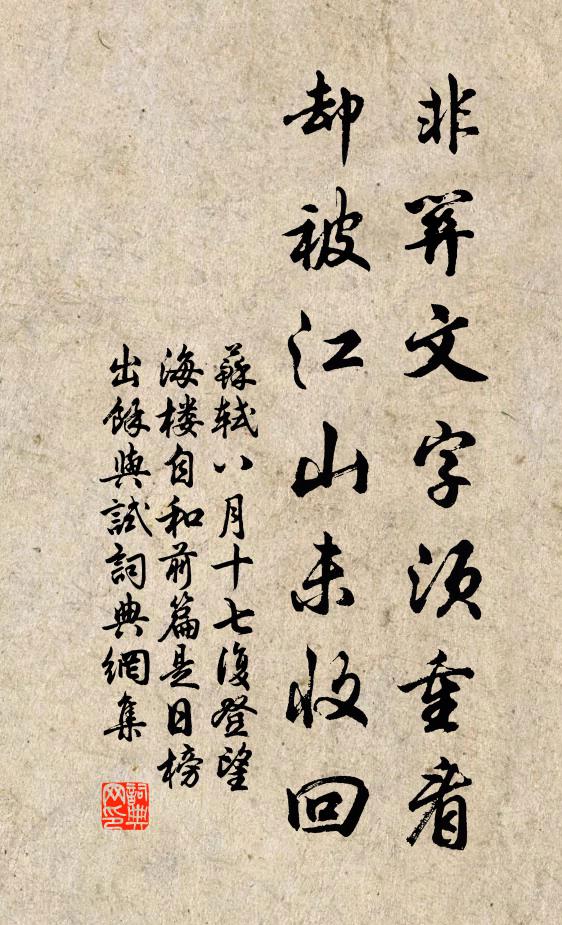 非関文字須重看
却被江山未收回
蘇軾八月十七復登望
海楼自和前篇是日榜
出餘與試詞典網集
詞典
网印